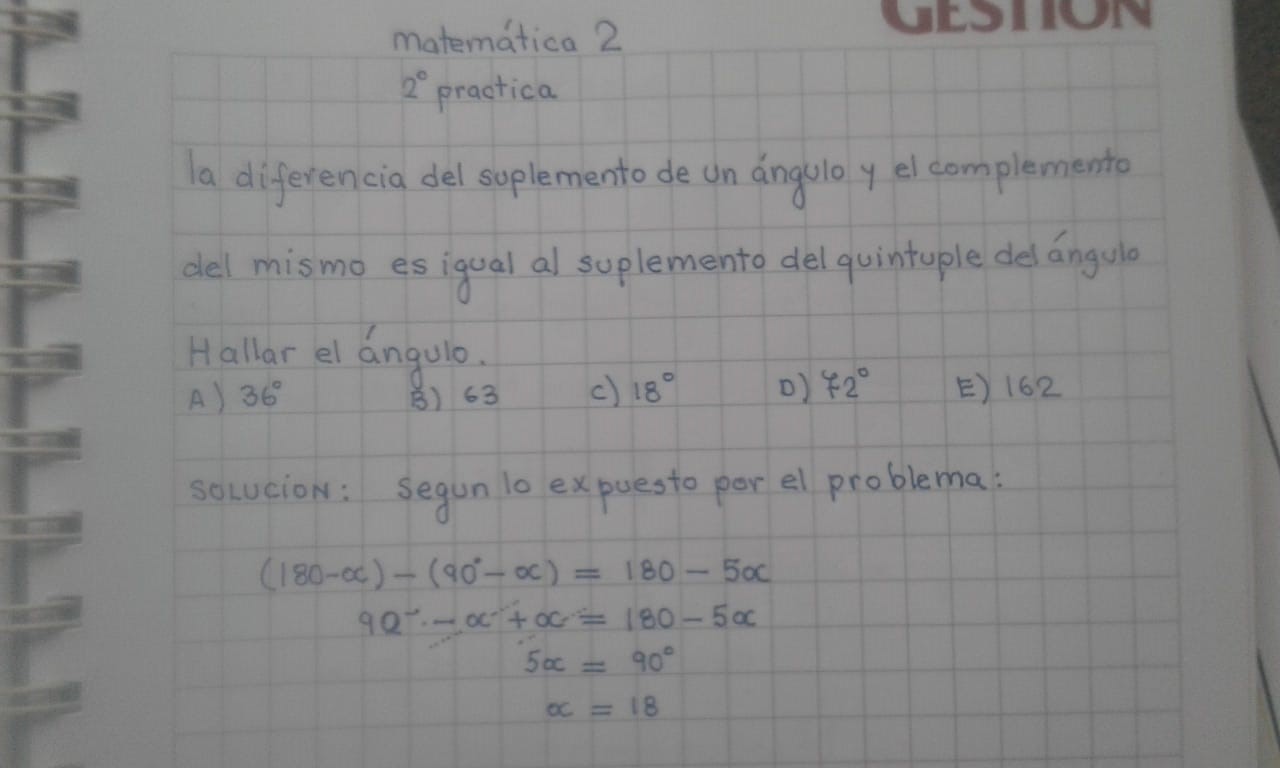 GESTION
matemática 2
2° practica
la diferencia del suplemento de un ángulo y el complemento
del mismo es igual al suplemento del quintuple del ángulo
Hallar el ángulo.
A) 36° B) 63 C) 18° D) 72° E) 162
SOLUCION: Segun lo expuesto por el problema:
(180-α) - (90°- α) = 180 - 5α
90° - α + α = 180 - 5α
5α = 90°
α = 18